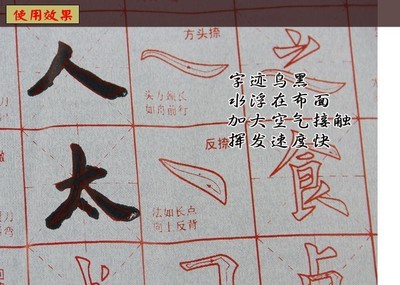 使用效果
方头撩
人
头方颈长
如鸟前行
之
字迹乌黑
水浮在布面
加大空气接触
挥发速度快
反撩
太
法如长点
向上反背
食